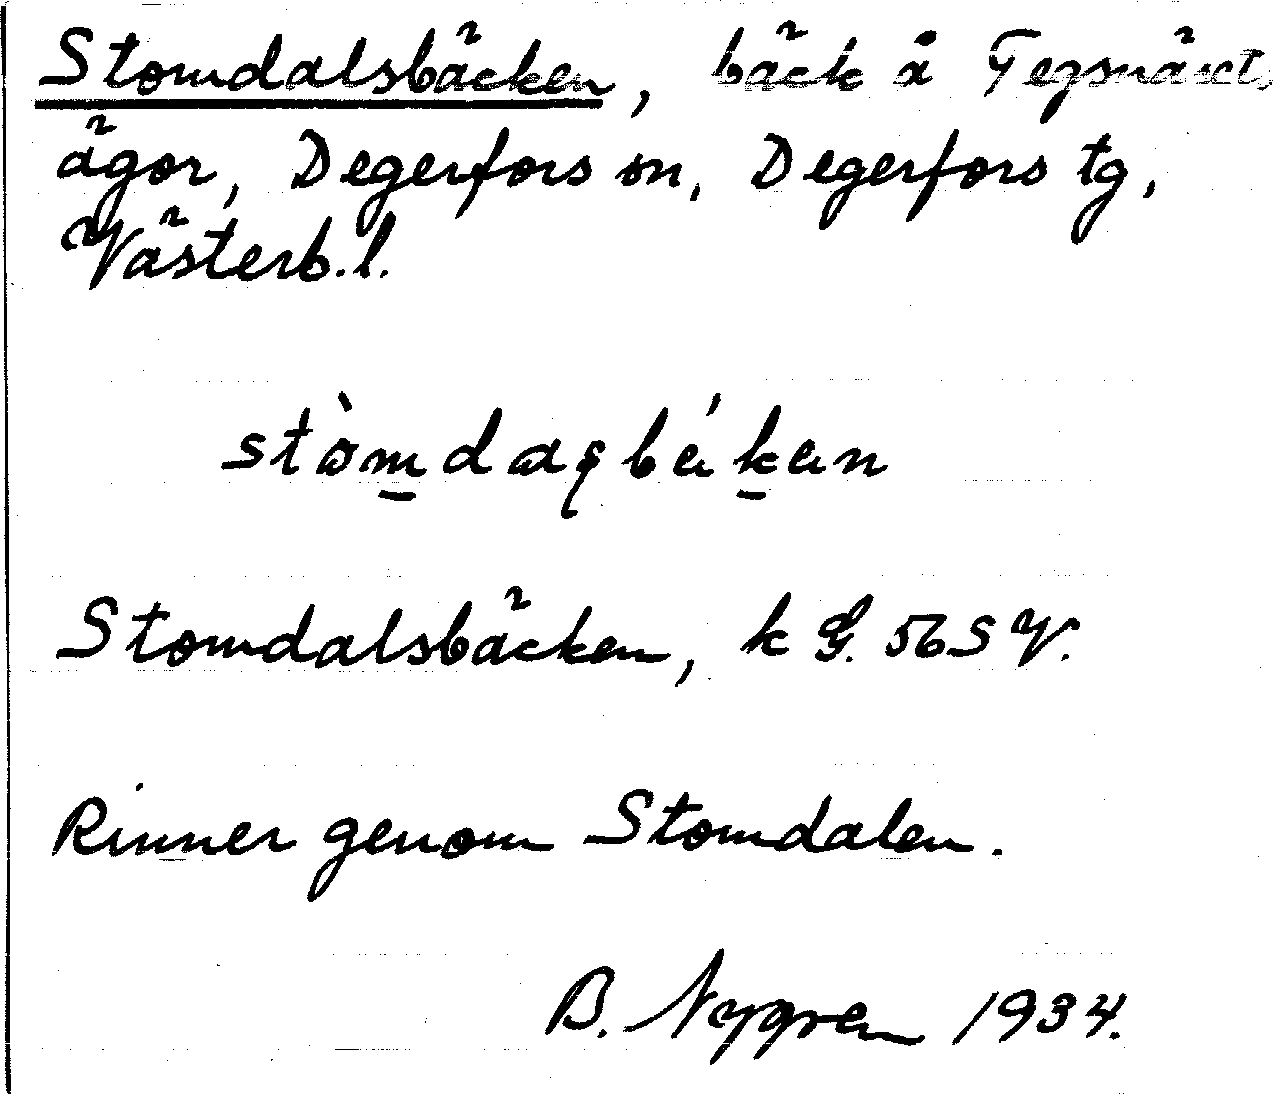 Stomdalsbäcken, bäck å Tegsnäset,
ägor, Degerfors sn, Degerfors tg,
Västerb.l.
Stomdalsbäcken, k G. 56 S V.
Rinner genom Stomdalen.
B. Nygren 1934.